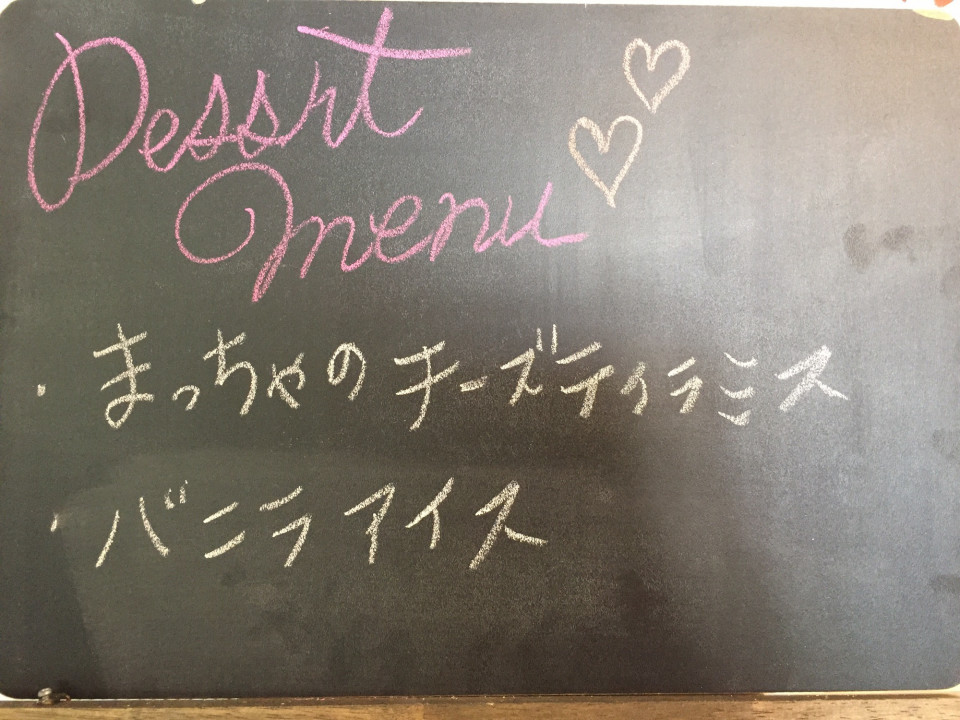 Dessrt
menu
・まっちゃのチーズティラミス
・バニラアイス